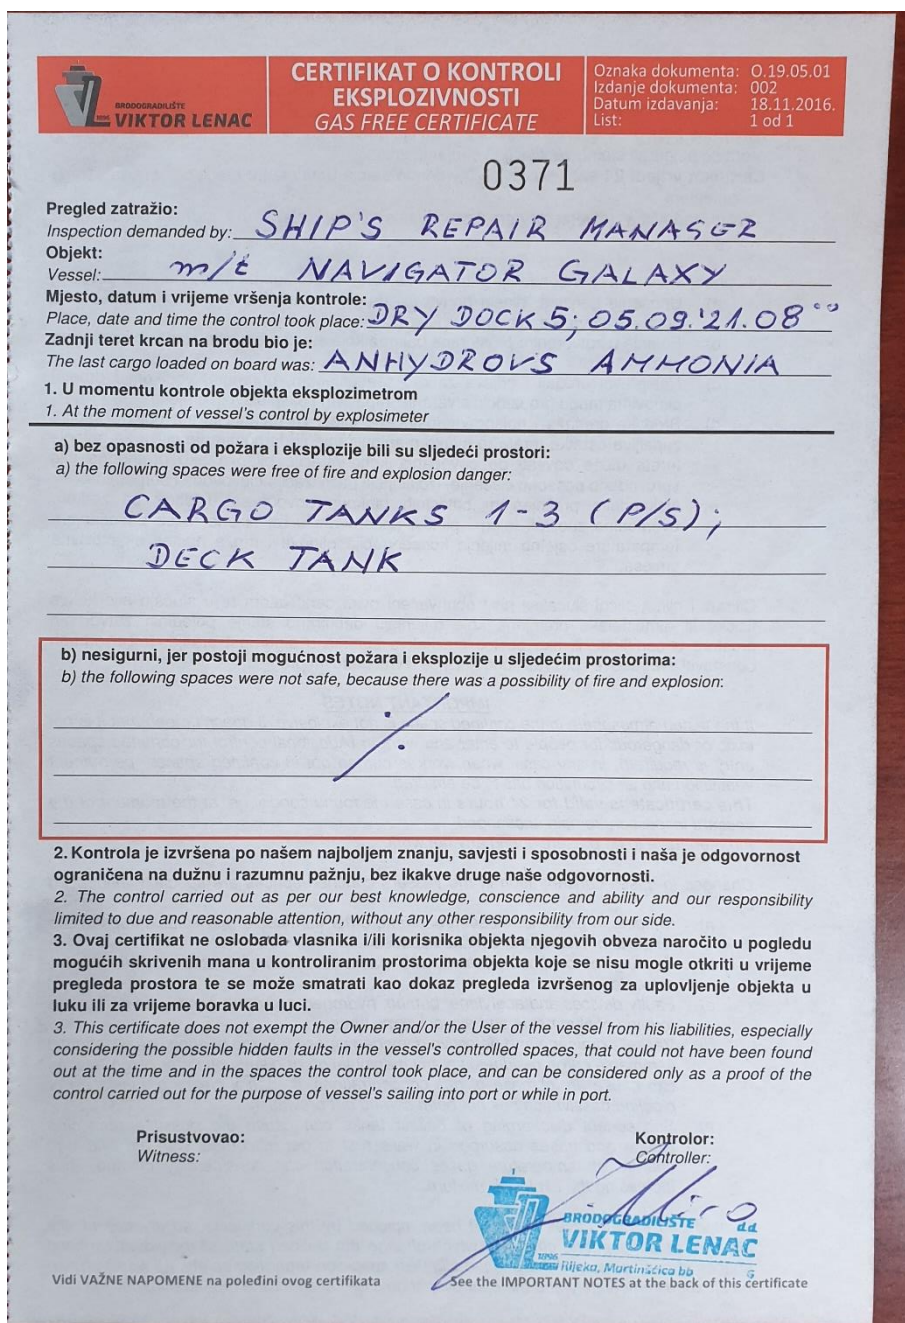 BRODOGRADILIŠTE
1896 VIKTOR LENAC
CERTIFIKAT O KONTROLI
EKSPLOZIVNOSTI
GAS FREE CERTIFICATE
Oznaka dokumenta: O.19.05.01
Izdanje dokumenta: 002
Datum izdavanja: 18.11.2016.
List: 1 od 1
0371
Pregled zatražio:
Inspection demanded by: SHIP'S REPAIR MANAGER
Objekt:
Vessel: m/t NAVIGATOR GALAXY
Mjesto, datum i vrijeme vršenja kontrole:
Place, date and time the control took place: DRY DOCK 5; 05.09.'21. 08⁰⁰
Zadnji teret krcan na brodu bio je:
The last cargo loaded on board was: ANHYDROVS AMMONIA
1. U momentu kontrole objekta eksplozimetrom
1. At the moment of vessel's control by explosimeter
a) bez opasnosti od požara i eksplozije bili su sljedeći prostori:
a) the following spaces were free of fire and explosion danger:
CARGO TANKS 1-3 (P/S);
DECK TANK
b) nesigurni, jer postoji mogućnost požara i eksplozije u sljedećim prostorima:
b) the following spaces were not safe, because there was a possibility of fire and explosion:
2. Kontrola je izvršena po našem najboljem znanju, savjesti i sposobnosti i naša je odgovornost
ograničena na dužnu i razumnu pažnju, bez ikakve druge naše odgovornosti.
2. The control carried out as per our best knowledge, conscience and ability and our responsibility
limited to due and reasonable attention, without any other responsibility from our side.
3. Ovaj certifikat ne oslobada vlasnika i/ili korisnika objekta njegovih obveza naročito u pogledu
mogućih skrivenih mana u kontroliranim prostorima objekta koje se nisu mogle otkriti u vrijeme
pregleda prostora te se može smatrati kao dokaz pregleda izvršenog za uplovljenje objekta u
luku ili za vrijeme boravka u luci.
3. This certificate does not exempt the Owner and/or the User of the vessel from his liabilities, especially
considering the possible hidden faults in the vessel's controlled spaces, that could not have been found
out at the time and in the spaces the control took place, and can be considered only as a proof of the
control carried out for the purpose of vessel's sailing into port or while in port.
Prisustvovao:
Witness:
Kontrolor:
Controller:
BRODOGRADILIŠTE d.d.
VIKTOR LENAC
Rijeka, Martinšćica bb 6
Vidi VAŽNE NAPOMENE na poleđini ovog certifikata
See the IMPORTANT NOTES at the back of this certificate